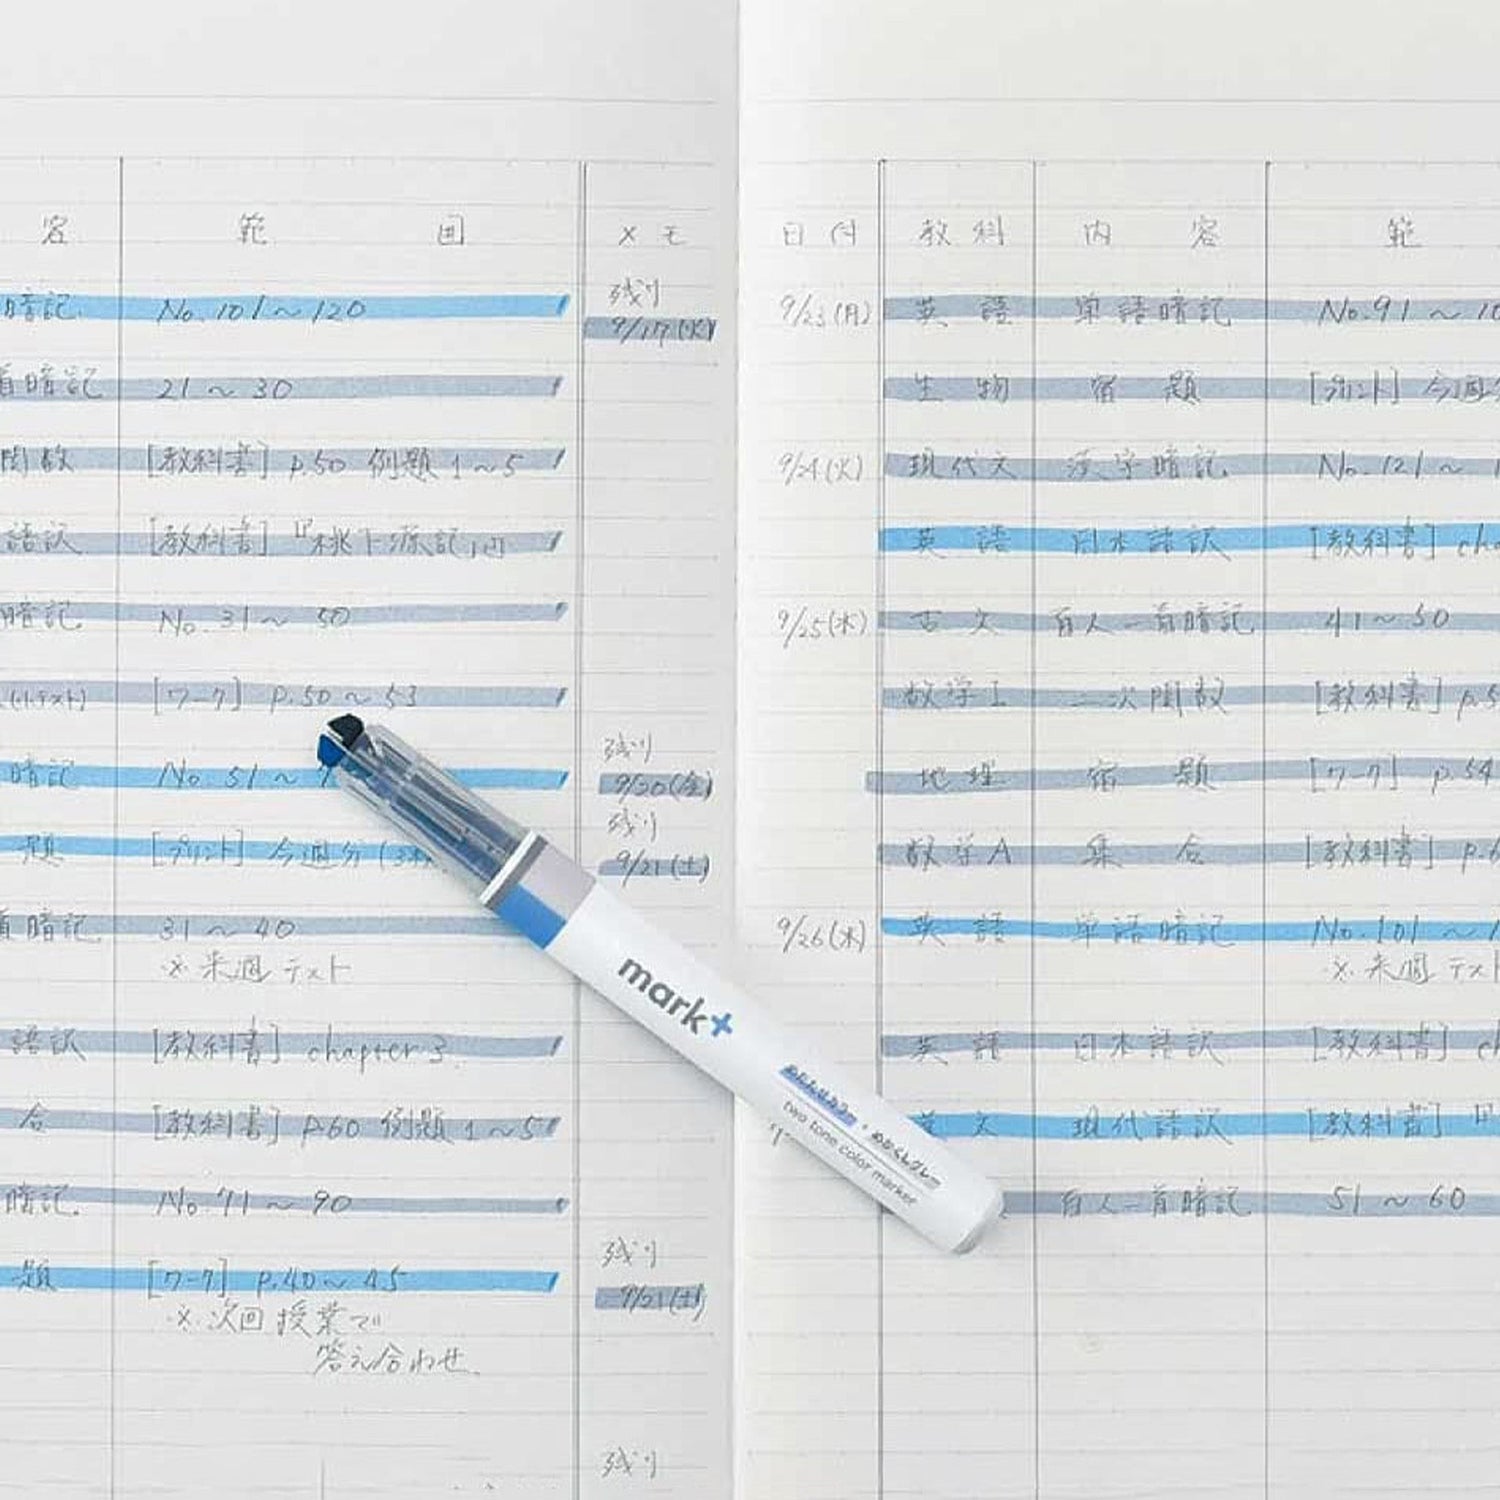 容 範 囲 メモ
残り
暗記 No. 101～120
9/17(火)
首暗記 21～30
関数 [教科書] p.50 例題 1～5
語訳 [教科書] 『桃下源記』
暗記 No. 31～50
(小テスト) [ワーク] p.50～53
残り
暗記 No. 51～7
9/20(金)
残り
題 [プリント] 今週分
9/21(土)
首暗記 31～40
※来週テスト
語訳 [教科書] chapter 3.
合 [教科書] p.60 例題 1～5
暗記. No. 71～90
残り
題 [ワーク] p.40～45
9/21(土)
※次回授業で
答え合わせ.
残り
日付 教科 内容 範
9/23(月) 英語 単語暗記 No.91～10
生物 宿題 [プリント] 今週分
9/24(火) 現代文 漢字暗記. No.121～1
英語 日本語訳 [教科書] cha
9/25(水) 古文 百人一首暗記. 41～50
数学I 二次関数 [教科書] p.5
地理 宿題 [ワーク] p.54
数学A 集合 [教科書] p.6
9/26(木) 英語 単語暗記 No.101～1
※来週テスト
英語 日本語訳 [教科書] ch
文 現代語訳 [教科書] 『
百人一首暗記. 51～60
mark+
two tone color marker